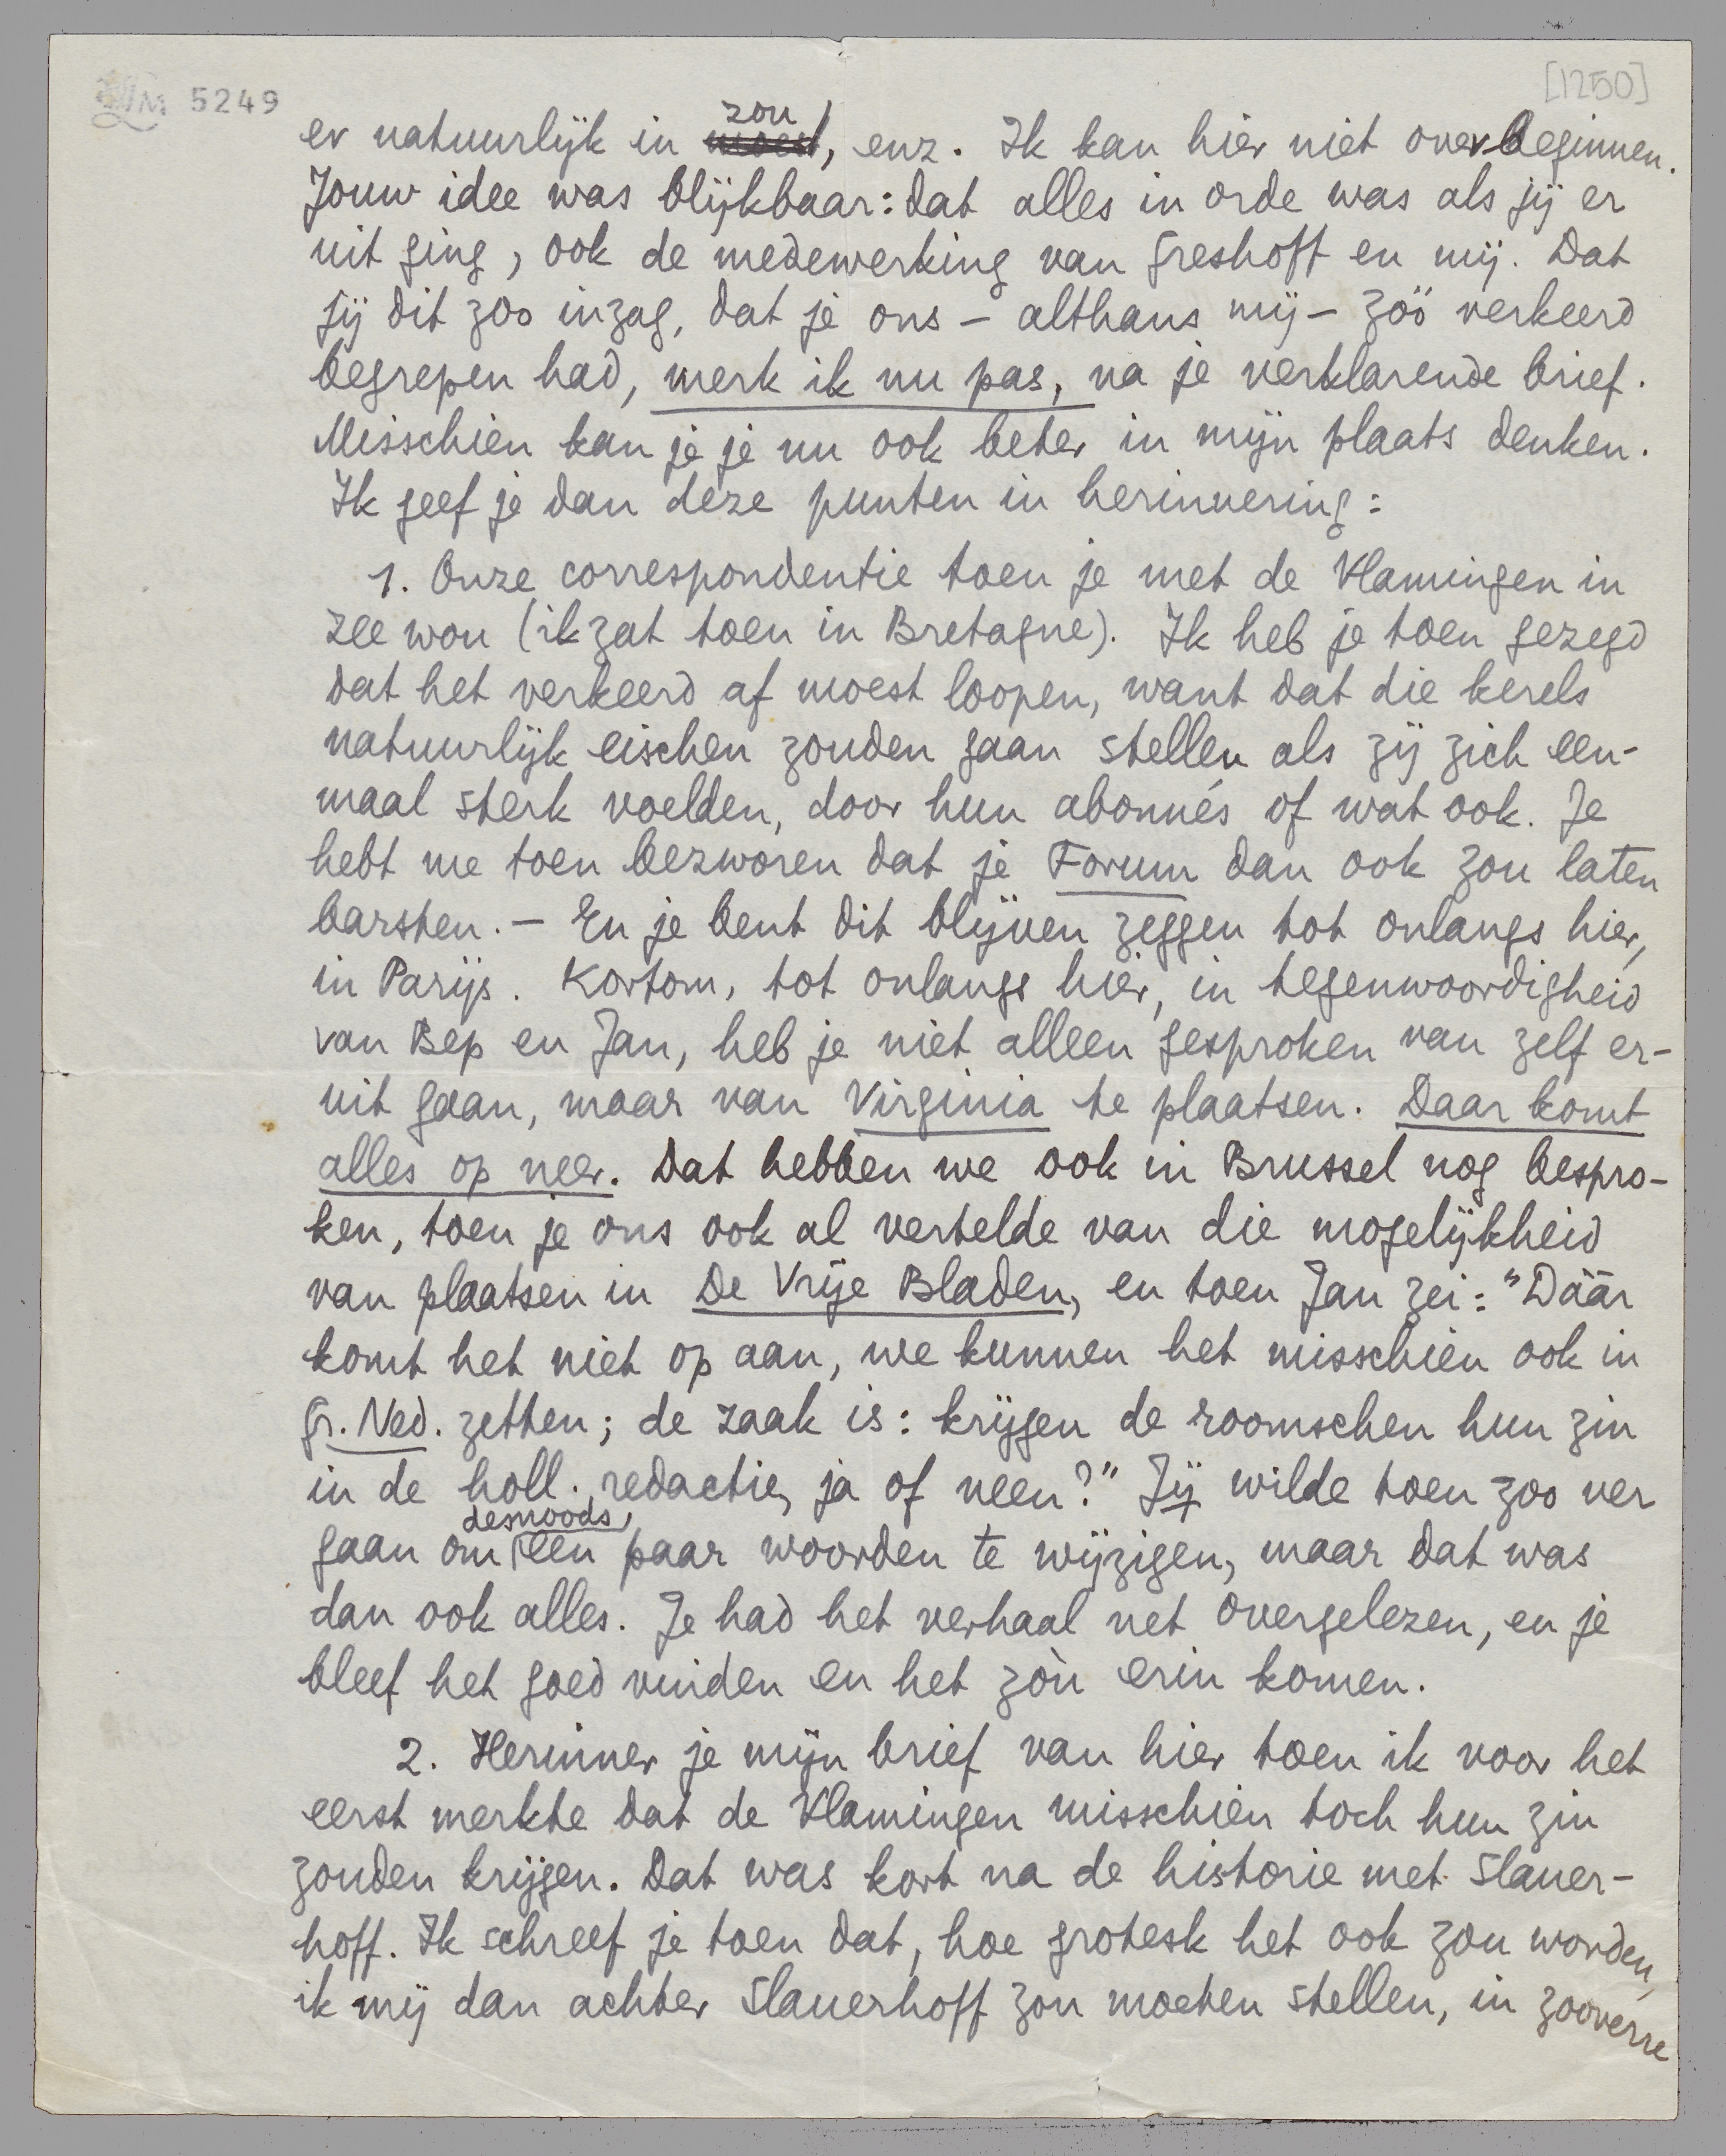 LM 5249
[1250]
er natuurlijk in moest zou, enz. Ik kan hier niet over beginnen.
Jouw idee was blijkbaar: dat alles in orde was als jij er
uit ging, ook de medewerking van Greshoff en mij. Dat
jij dit zoo inzag, dat je ons – althans mij – zóó verkeerd
begrepen had, merk ik nu pas, na je verklarende brief.
Misschien kan je je nu ook beter in mijn plaats denken.
Ik geef je dan deze punten in herinnering:
1. Onze correspondentie toen je met de Vlamingen in
zee wou (ik zat toen in Bretagne). Ik heb je toen gezegd
dat het verkeerd af moest loopen, want dat die kerels
natuurlijk eischen zouden gaan stellen als zij zich een-
maal sterk voelden, door hun abonnés of wat ook. Je
hebt me toen bezworen dat je Forum dan ook zou laten
barsten. – En je bent dit blijven zeggen tot onlangs hier,
in Parijs. Kortom, tot onlangs hier, in tegenwoordigheid
van Bep en Jan, heb je niet alleen gesproken van zelf er-
uit gaan, maar van Virginia te plaatsen. Daar komt
alles op neer. Dat hebben we ook in Brussel nog bespro-
ken, toen je ons ook al vertelde van die mogelijkheid
van plaatsen in De Vrije Bladen, en toen Jan zei: "Dáár
komt het niet op aan, we kunnen het misschien ook in
Gr. Ned. zetten; de zaak is: krijgen de roomschen hun zin
in de holl. redactie, ja of neen?" Jij wilde toen zoo ver
gaan om desnoods een paar woorden te wijzigen, maar dat was
dan ook alles. Je had het verhaal net overgelezen, en je
bleef het goed vinden en het zòu erin komen.
2. Herinner je mijn brief van hier toen ik voor het
eerst merkte dat de Vlamingen misschien toch hun zin
zouden krijgen. Dat was kort na de historie met Slauer-
hoff. Ik schreef je toen dat, hoe grotesk het ook zou worden,
ik mij dan achter Slauerhoff zou moeten stellen, in zooverre